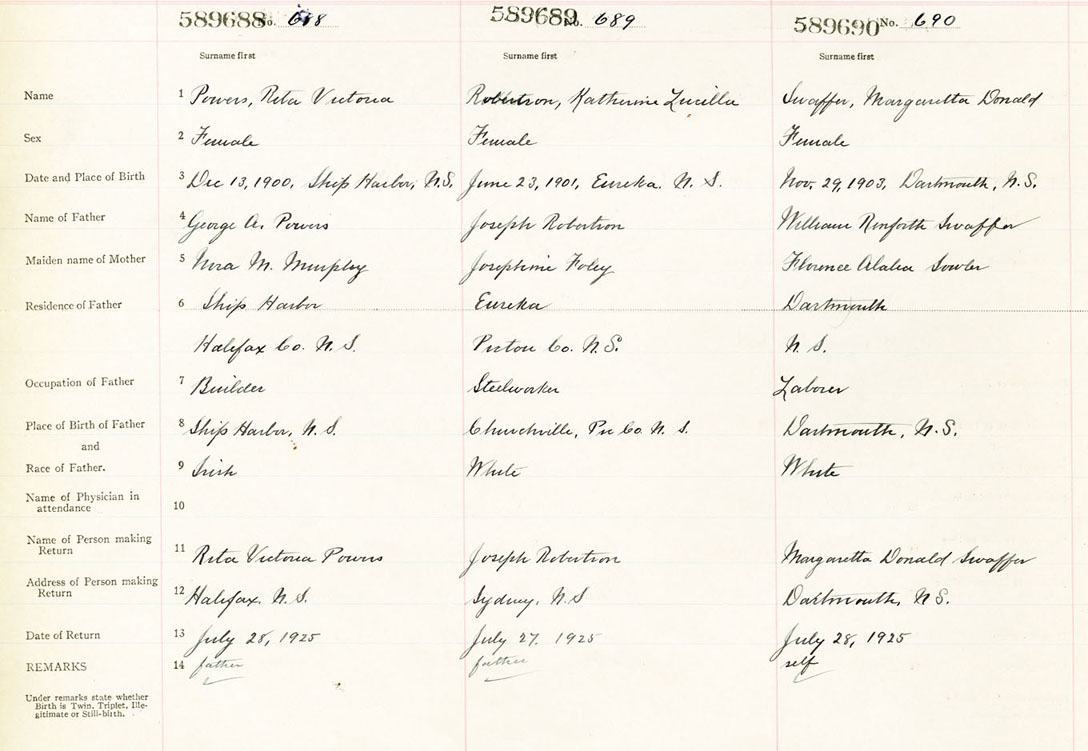 589688 No. 688 589689 No. 689 589690 No. 690
Surname first Surname first Surname first
Name 1 Powers, Rita Victoria Robertson, Katherine Lucilla Swaffer, Margaretta Donald
Sex 2 Female Female Female
Date and Place of Birth 3 Dec 13, 1900, Ship Harbor, N.S. June 23, 1901, Eureka. N. S. Nov. 29, 1903, Dartmouth, N.S.
Name of Father 4 George A. Powers Joseph Robertson William Renforth Swaffer
Maiden name of Mother 5 Nora M. Murphy Josephine Foley Florence Sowler
Residence of Father 6 Ship Harbor Eureka Dartmouth
Halifax Co. N. S. Pictou Co. N.S. N. S.
Occupation of Father 7 Builder Steelworker Laborer
Place of Birth of Father 8 Ship Harbor, N. S. Churchville, Pic Co. N. S. Dartmouth, N.S.
and
Race of Father. 9 Irish White White
Name of Physician in
attendance 10
Name of Person making
Return 11 Rita Victoria Powers Joseph Robertson Margaretta Donald Swaffer
Address of Person making
Return 12 Halifax. N.S. Sydney, N.S Dartmouth, N.S.
Date of Return 13 July 28, 1925 July 27. 1925 July 28, 1925
REMARKS 14 father father self
Under remarks state whether
Birth is Twin, Triplet, Ille-
gitimate or Still-birth.